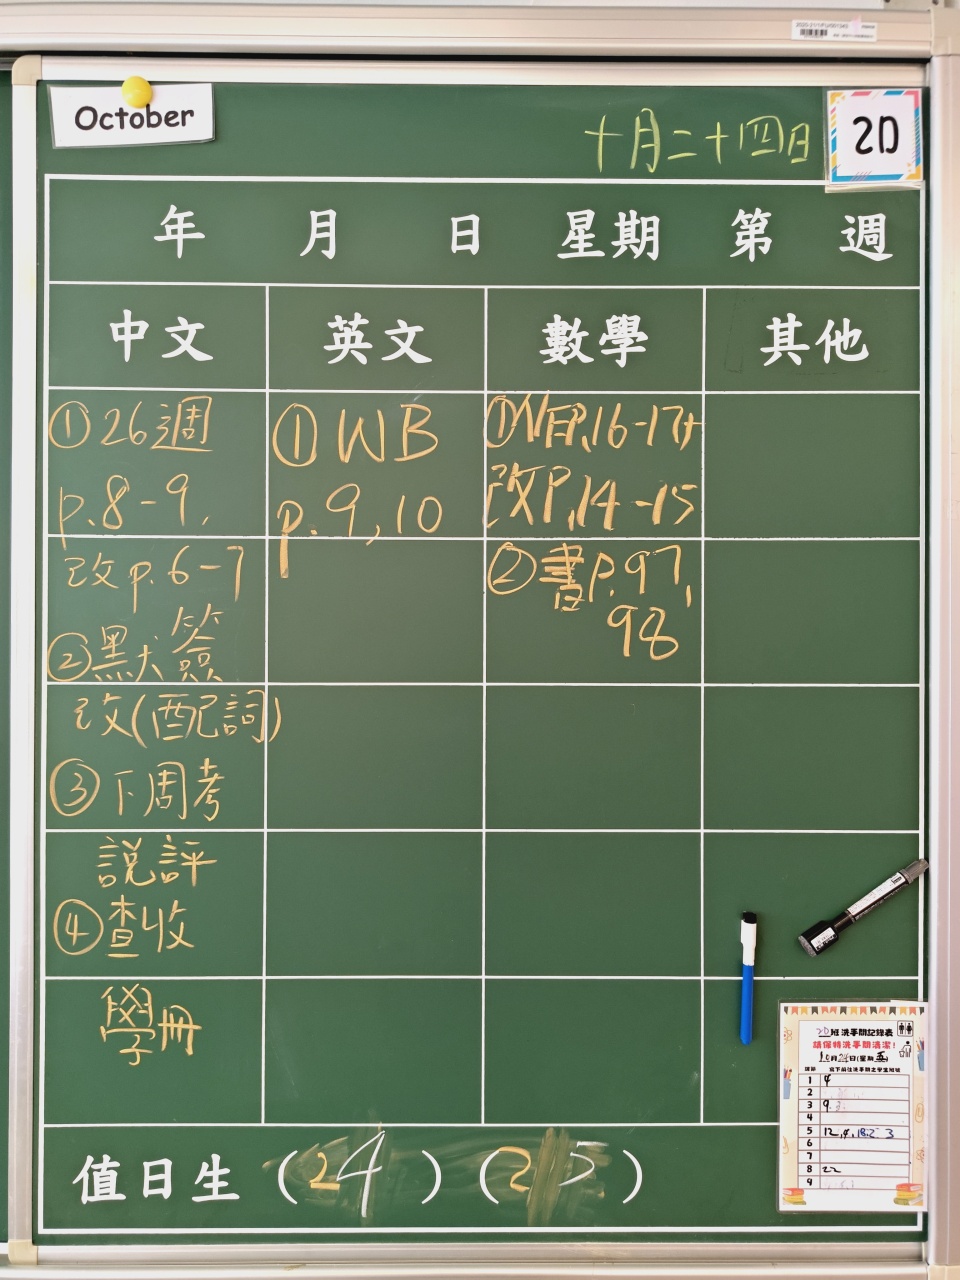 October
十月二十四日
2D
年 月 日 星期 第 週
中文 英文 數學 其他
①26週
p.8-9,
改p.6-7
②默簽
改(配詞)
③下周考
說評
④查收
學冊
①WB
p.9,10
①WBP.16-17+
改P.14-15
②書p.97,
98
2D班洗手間記錄表
請保持洗手間清潔!
10月24日(星期五)
1 4
2
3 9.
4
5 12,9,18
6
7
8 22
9
值日生 (24) (25)